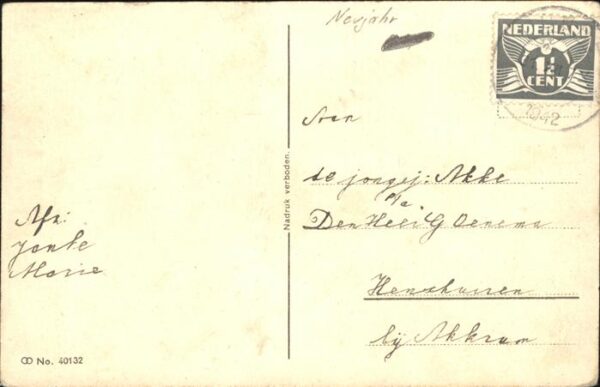 Neujahr
NEDERLAND
1½
CENT
Aan
de jongej: Akke
p/a.
Den Heer G Oenema
bij Akkrum
Afz:
Marie
Nadruk verboden.
No. 40132